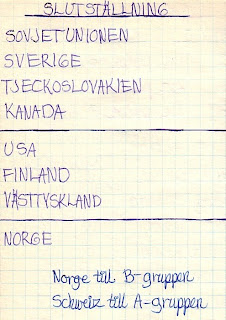 SLUTSTÄLLNING
SOVJETUNIONEN
SVERIGE
TJECKOSLOVAKIEN
KANADA
USA
FINLAND
VÄSTTYSKLAND
NORGE
Norge till B-gruppen
Schweiz till A-gruppen